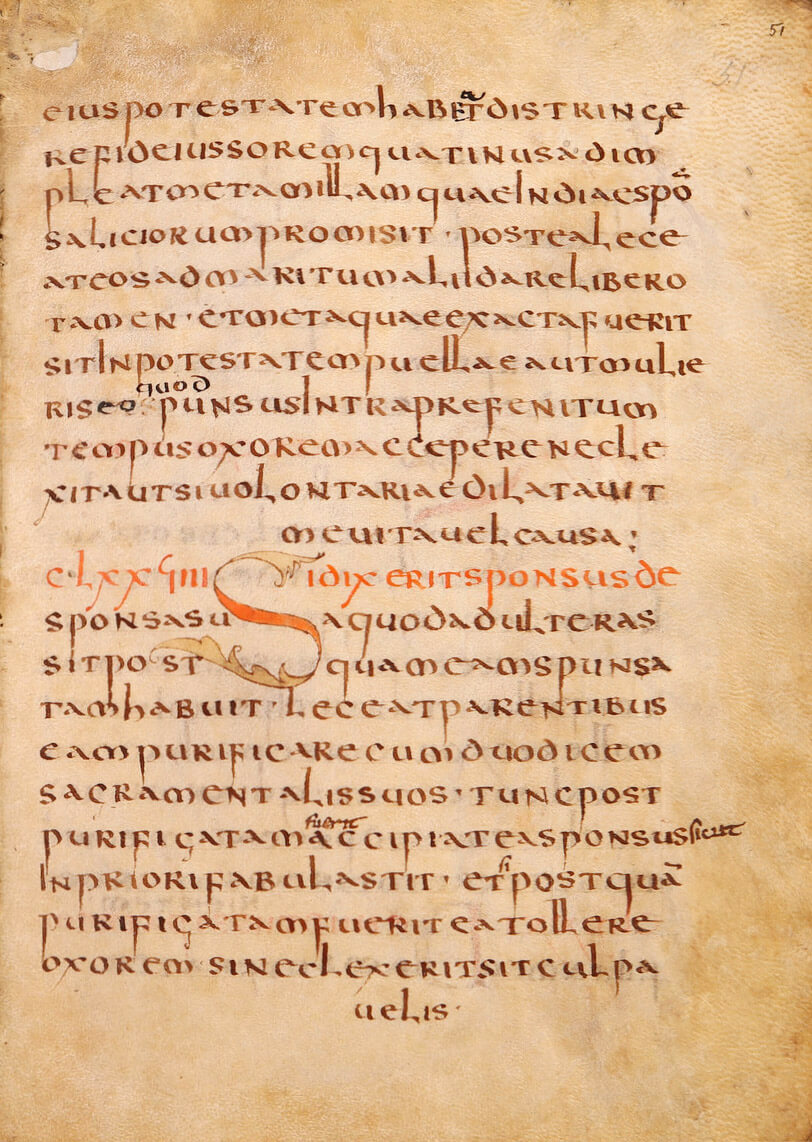 51
51
eius potestatem habet distringe
re fideiussorem quatinus adim
pleat metam illam quae in diae spo
saliciorum promisit · postea lece
at eos ad maritum alii dare libero
tamen · et meta quae exacta fuerit
sit in potestatem puellae aut mulie
quod
ris eo spunsus intra prefenitum
tempus oxorem accepere necle
xit aut si uolontariae dilatauit
me uita uel causa ;
CLXXVIIII Si dixerit sponsus de
sponsa sua quod adulteras
sit postquam eam spunsa
tam habuit · leceat parentibus
eam purificare cum duodicem
sacramentalis suos · tunc post
fuerit
purificatam accipiat ea sponsus sicut
in priori fabula stit · et si postquā
purificatam fuerit ea tollere
oxorem sineclexerit sit culpa
uelis ·